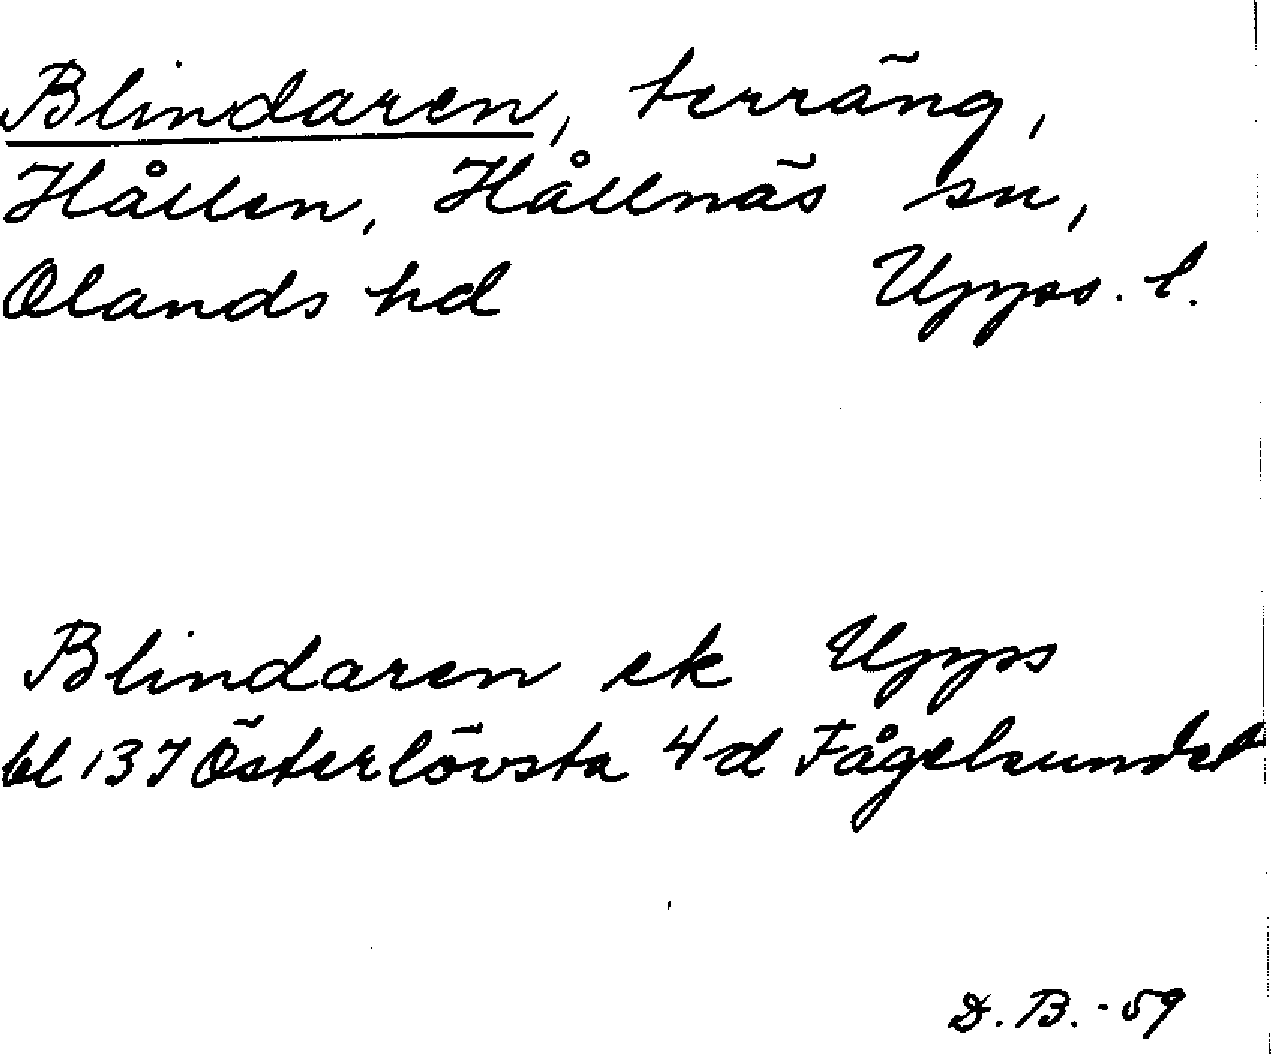 Blindaren, terräng,
Hållen, Hållnäs sn,
Olands hd Upps. l.
Blindaren ek Upps
bl 137 Österlövsta 4d Fågelsundet
D. B. - 59